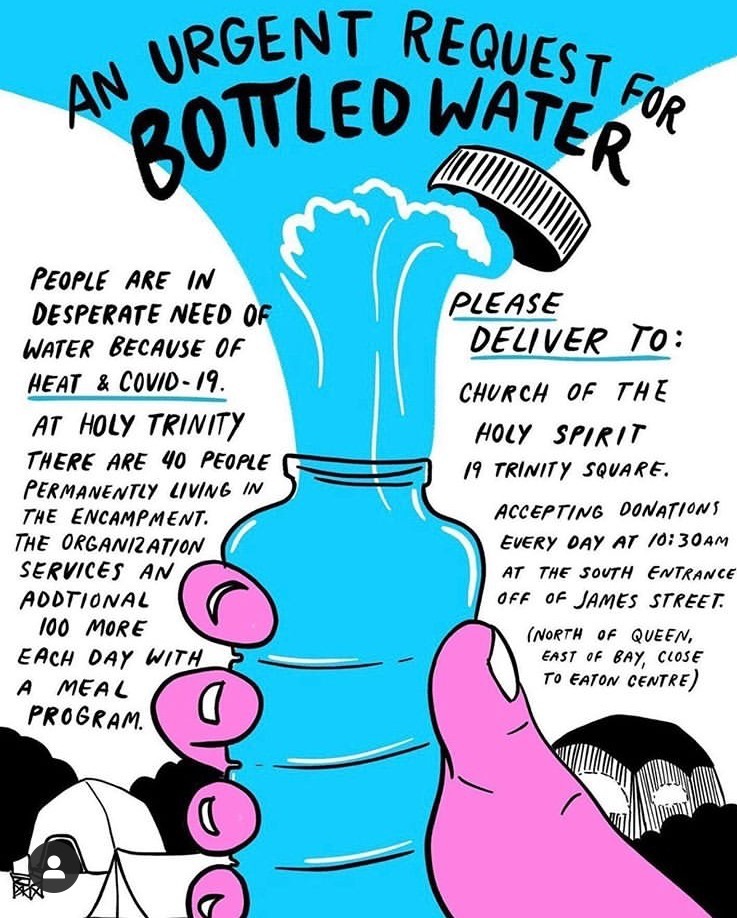 AN URGENT REQUEST FOR
BOTTLED WATER
PEOPLE ARE IN
DESPERATE NEED OF
WATER BECAUSE OF
HEAT & COVID-19.
AT HOLY TRINITY
THERE ARE 40 PEOPLE
PERMANENTLY LIVING IN
THE ENCAMPMENT.
THE ORGANIZATION
SERVICES AN
ADDTIONAL
100 MORE
EACH DAY WITH
A MEAL
PROGRAM.
PLEASE
DELIVER TO:
CHURCH OF THE
HOLY SPIRIT
19 TRINITY SQUARE.
ACCEPTING DONATIONS
EVERY DAY AT 10:30AM
AT THE SOUTH ENTRANCE
OFF OF JAMES STREET.
(NORTH OF QUEEN,
EAST OF BAY, CLOSE
TO EATON CENTRE)